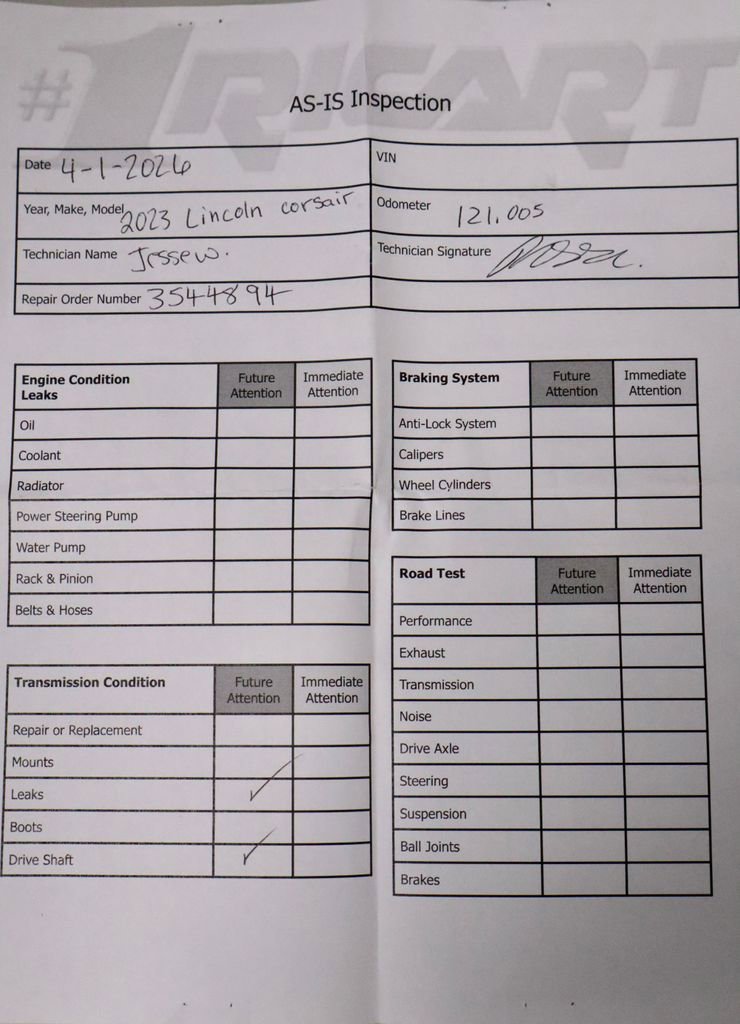 #1RICART
AS-IS Inspection
Date 4-1-2026
VIN
Year, Make, Model 2023 Lincoln corsair
Odometer 121,005
Technician Name Jesse W.
Technician Signature
Repair Order Number 3544894
Engine Condition Leaks Future Attention Immediate Attention
Oil
Coolant
Radiator
Power Steering Pump
Water Pump
Rack & Pinion
Belts & Hoses
Transmission Condition Future Attention Immediate Attention
Repair or Replacement
Mounts
Leaks ✓
Boots
Drive Shaft ✓
Braking System Future Attention Immediate Attention
Anti-Lock System
Calipers
Wheel Cylinders
Brake Lines
Road Test Future Attention Immediate Attention
Performance
Exhaust
Transmission
Noise
Drive Axle
Steering
Suspension
Ball Joints
Brakes